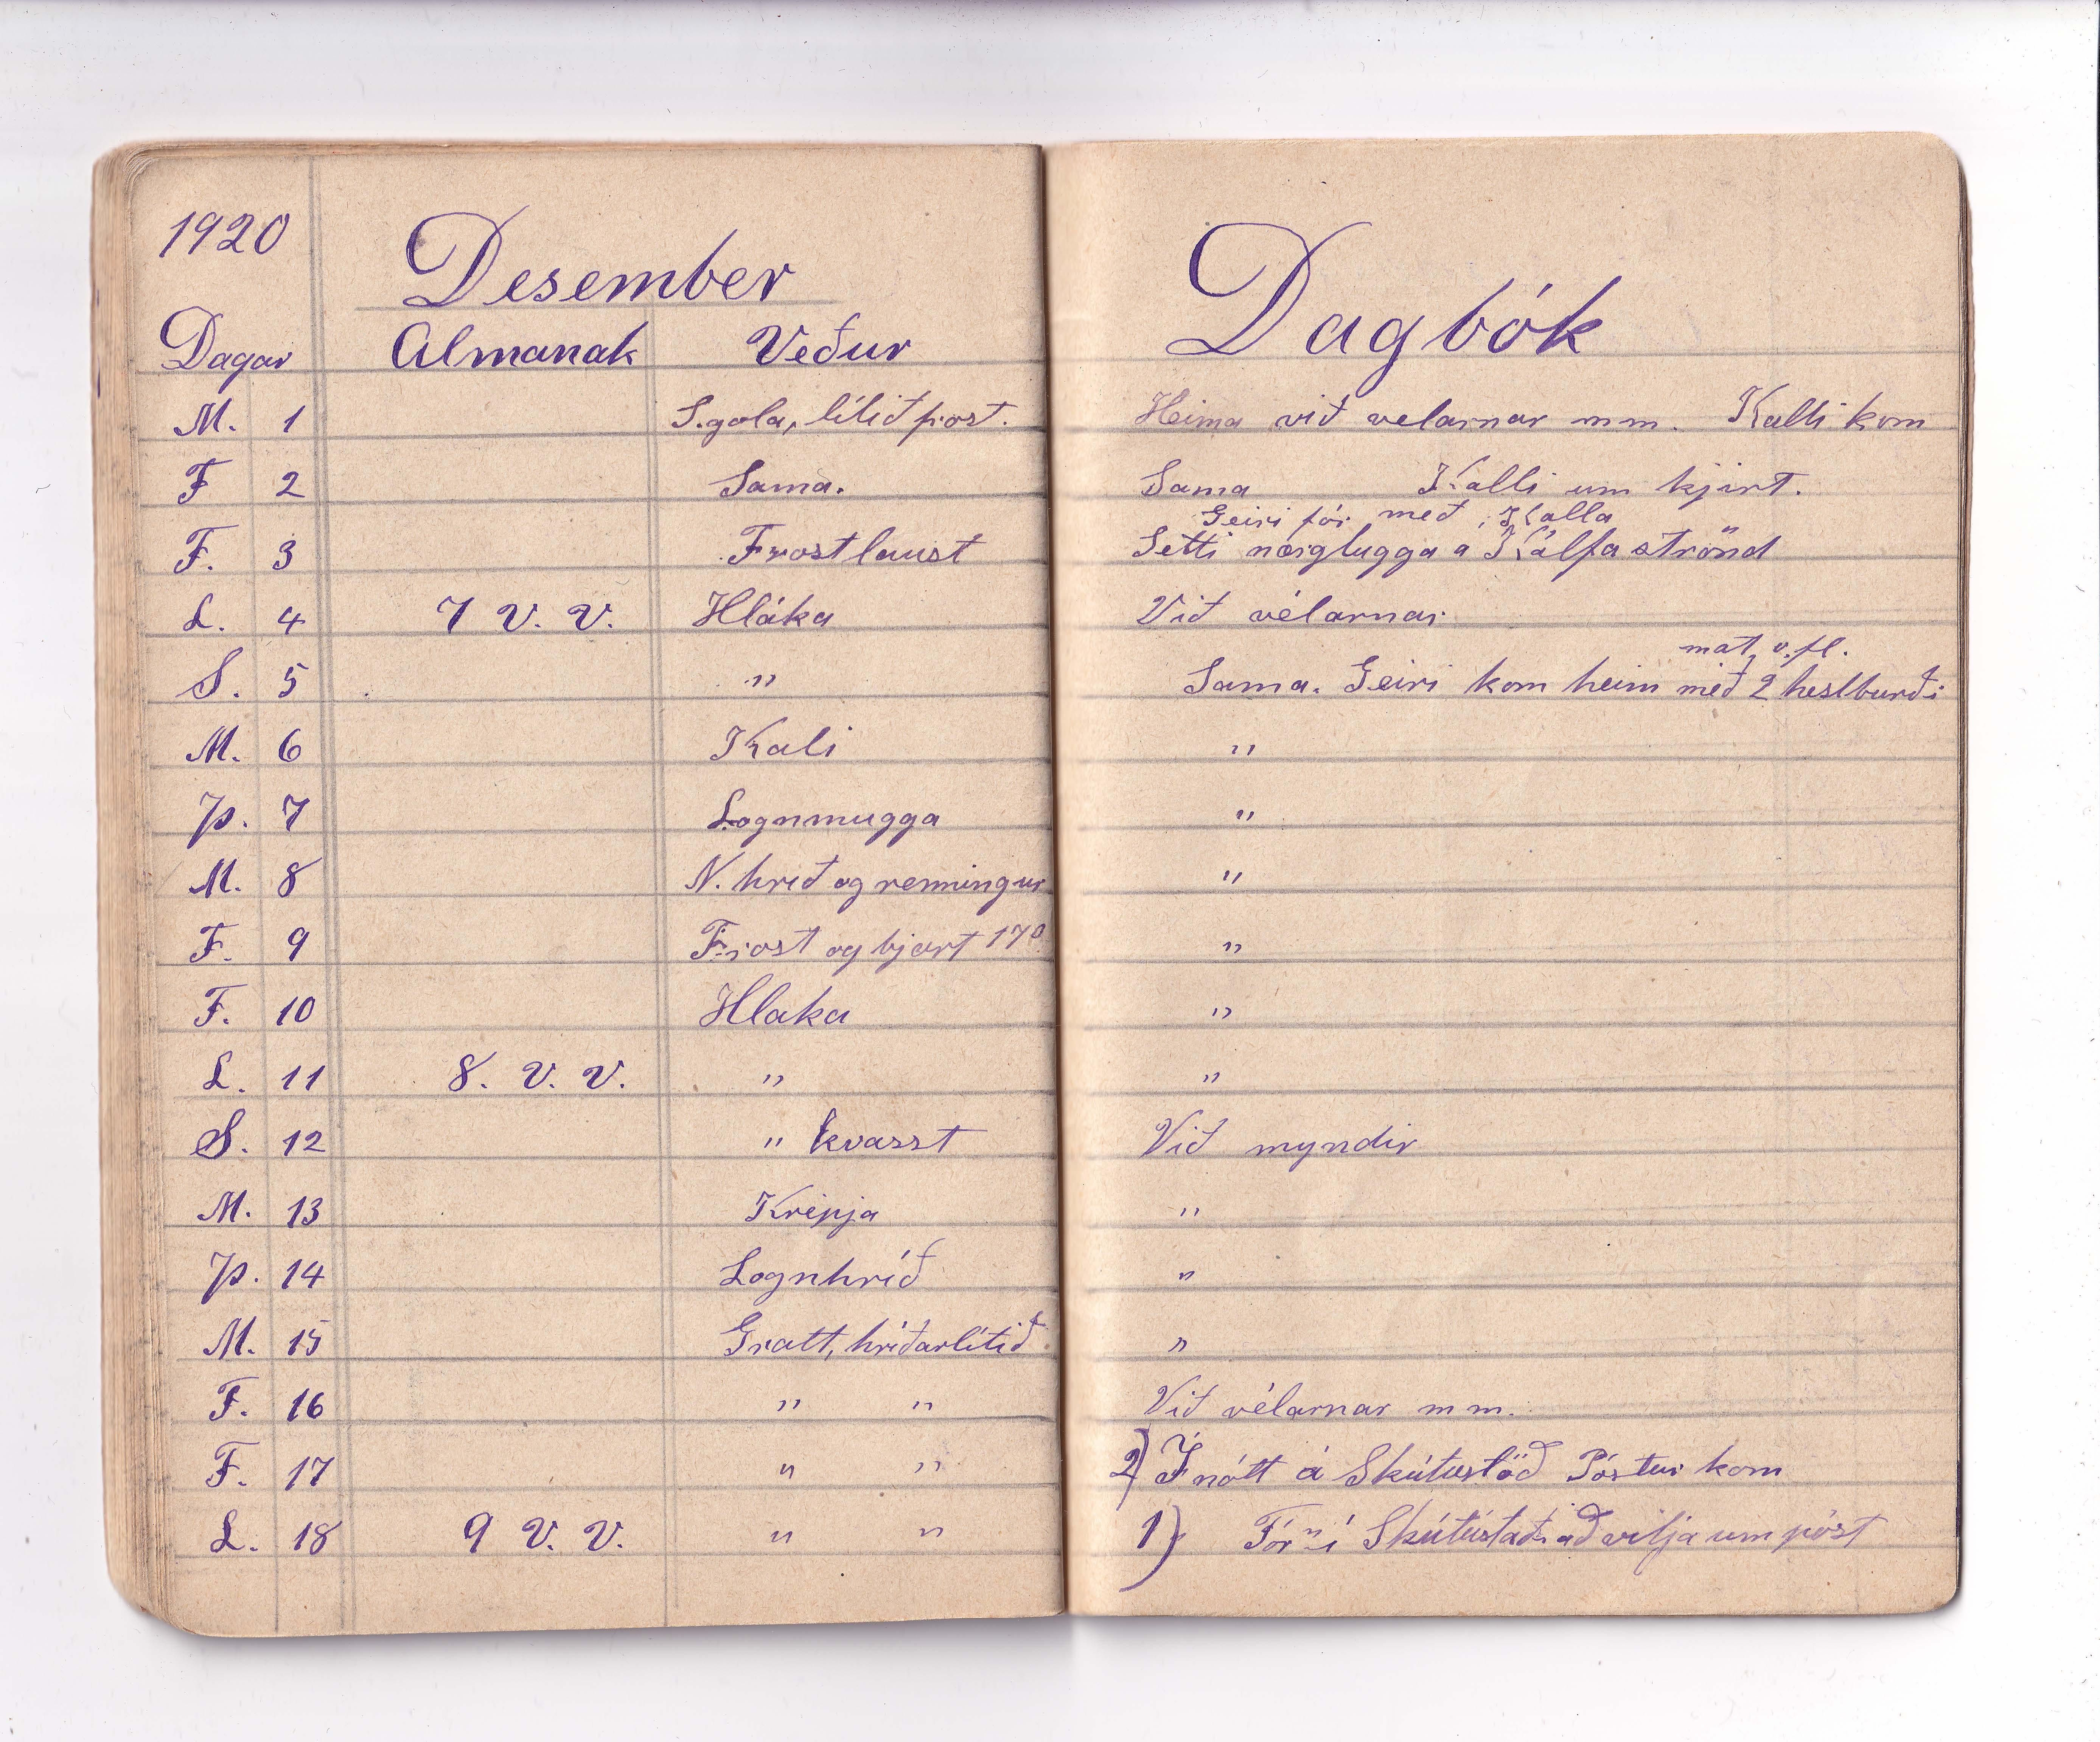 1920
Desember
Dagar Almanak Veður
M. 1 S.gola, lítið frost.
F 2 Sama.
F. 3 Frostlaust
L. 4 7 V. V. Hláka
S. 5 "
M. 6 Kali
Þ. 7 Lognmugga
M. 8 N. hrið og renningur
F. 9 Frost og bjart 17°
F. 10 Hlaka
L. 11 8. V. V. "
S. 12 " kvasst
M. 13 Krepja
Þ. 14 Lognhríð
M. 15 Gratt, hríðarlítið
F. 16 " "
F. 17 " "
L. 18 9 V. V. " "
Dagbók
Heima við velarnar m m. Kalli kom
Sama Kalli um kjirt.
Geiri fór með Kalla
Setti nærglugga a Kálfaströnd
Við vélarnar
mat o.fl.
Sama. Geiri kom heim með 2 hestburði
"
"
"
"
"
"
Við myndir
"
"
"
Við vélarnar m m.
2) Í nótt á Skútustöð Póstur kom
1) Fór í Skútústaði að vitja um póst